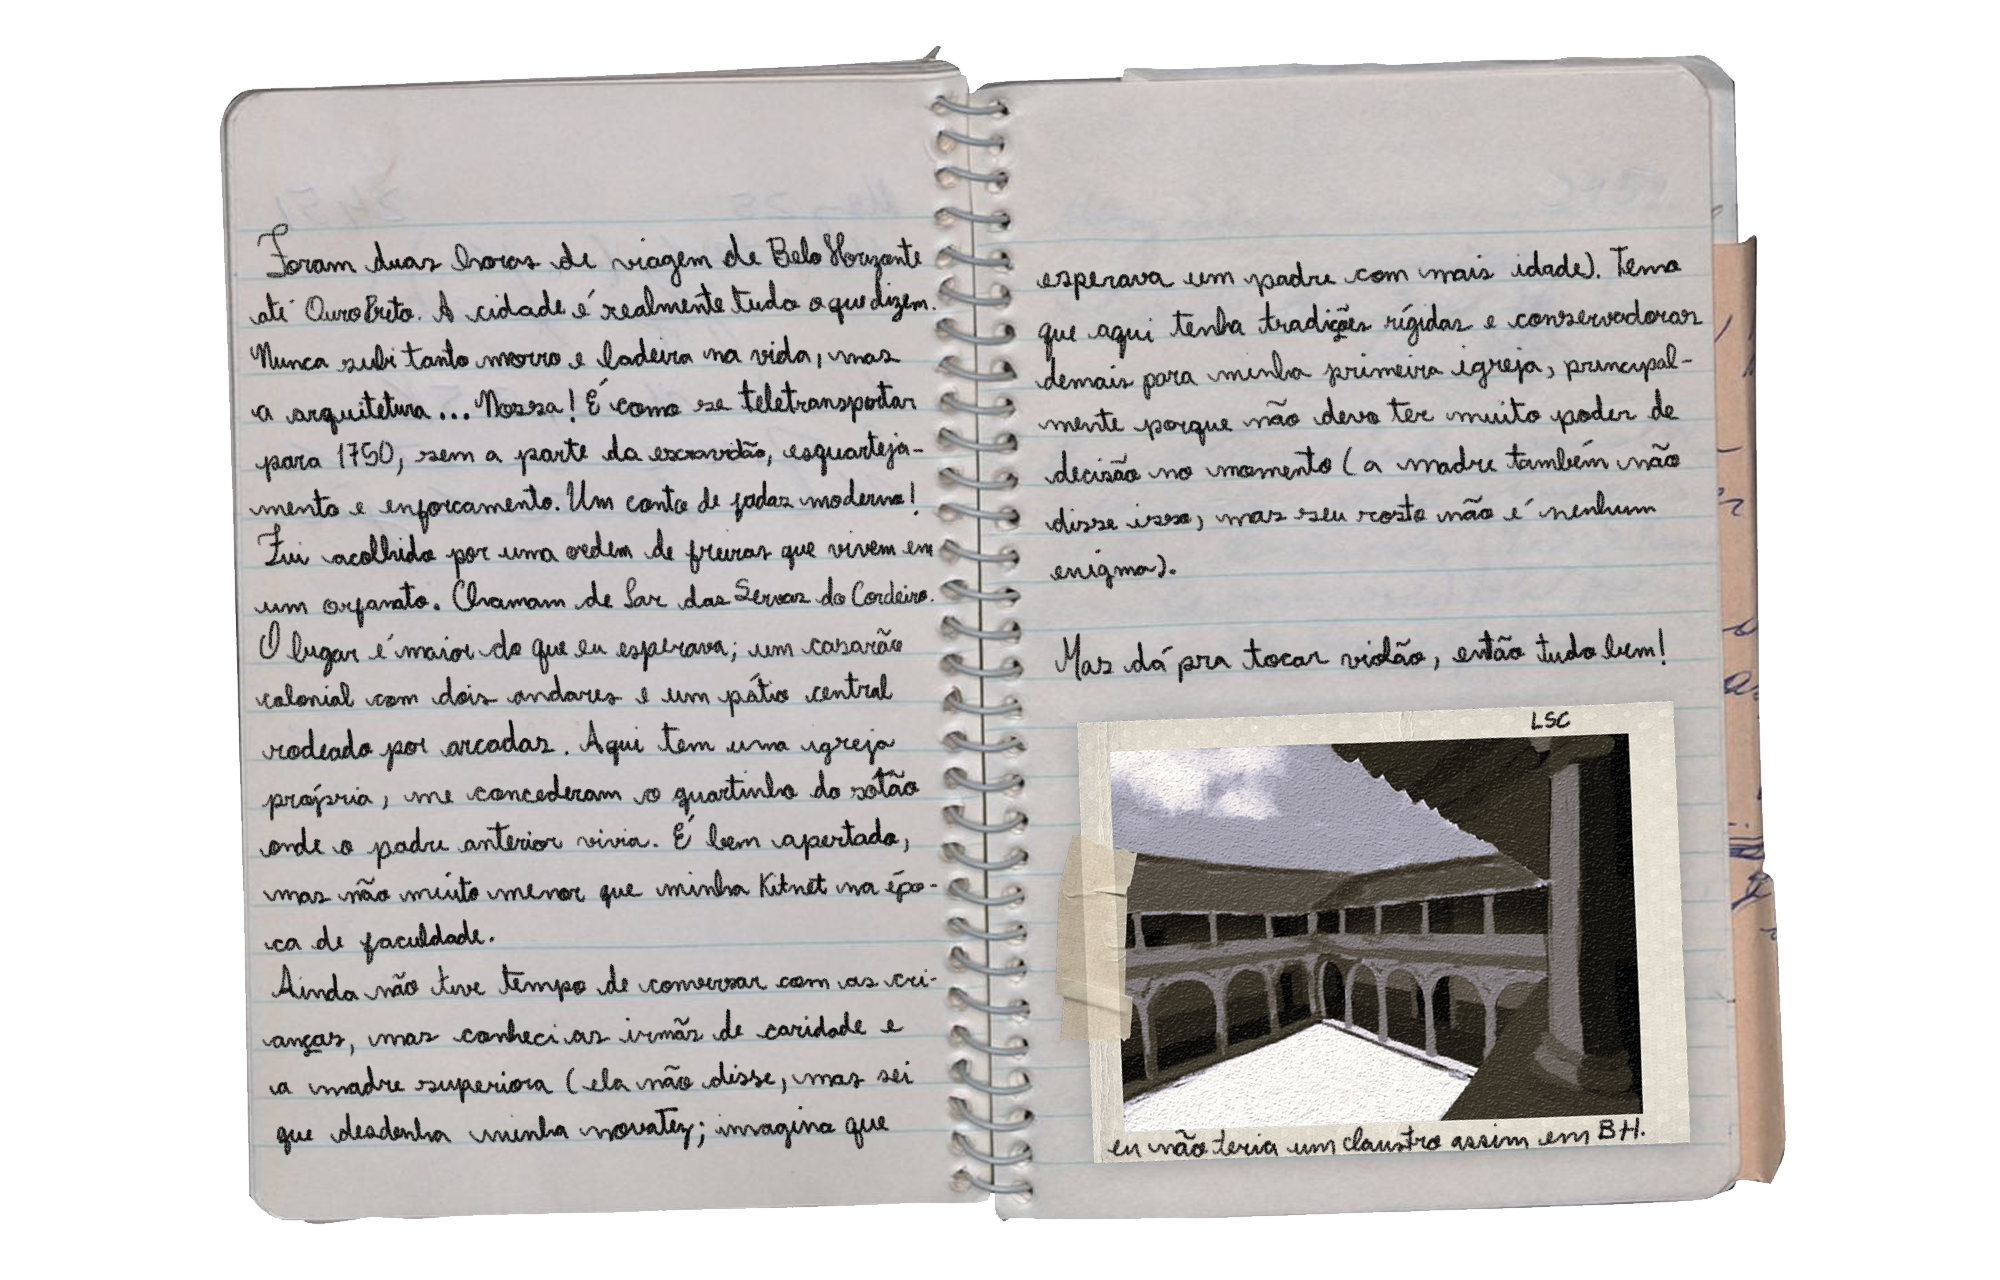 Foram duas horas de viagem de Belo Horizonte
até Ouro Preto. A cidade é realmente tudo o que dizem.
Nunca subi tanto morro e ladeira na vida, mas
a arquitetura... Nossa! É como se teletransportar
para 1750, sem a parte da escravidão, esquarteja-
mento e enforcamento. Um conto de fadas moderno!
Fui acolhido por uma ordem de freiras que vivem em
um orfanato. Chamam de Lar das Servas do Cordeiro.
O lugar é maior do que eu esperava; um casarão
colonial com dois andares e um pátio central
rodeado por arcadas. Aqui tem uma igreja
própria, me concederam o quartinho do sótão
onde o padre anterior vivia. É bem apertado,
mas não muito menor que minha Kitnet na épo-
ca de faculdade.
Ainda não tive tempo de conversar com as cri-
anças, mas conheci as irmãs de caridade e
a madre superiora (ela não disse, mas sei
que desdenha minha novatez; imagino que
esperava um padre com mais idade). Temo
que aqui tenha tradições rígidas e conservadoras
demais para minha primeira igreja, principal-
mente porque não devo ter muito poder de
decisão no momento (a madre também não
disse isso, mas seu rosto não é nenhum
enigma).
Mas dá pra tocar violão, então tudo bem!
LSC
eu não teria um claustro assim em BH.